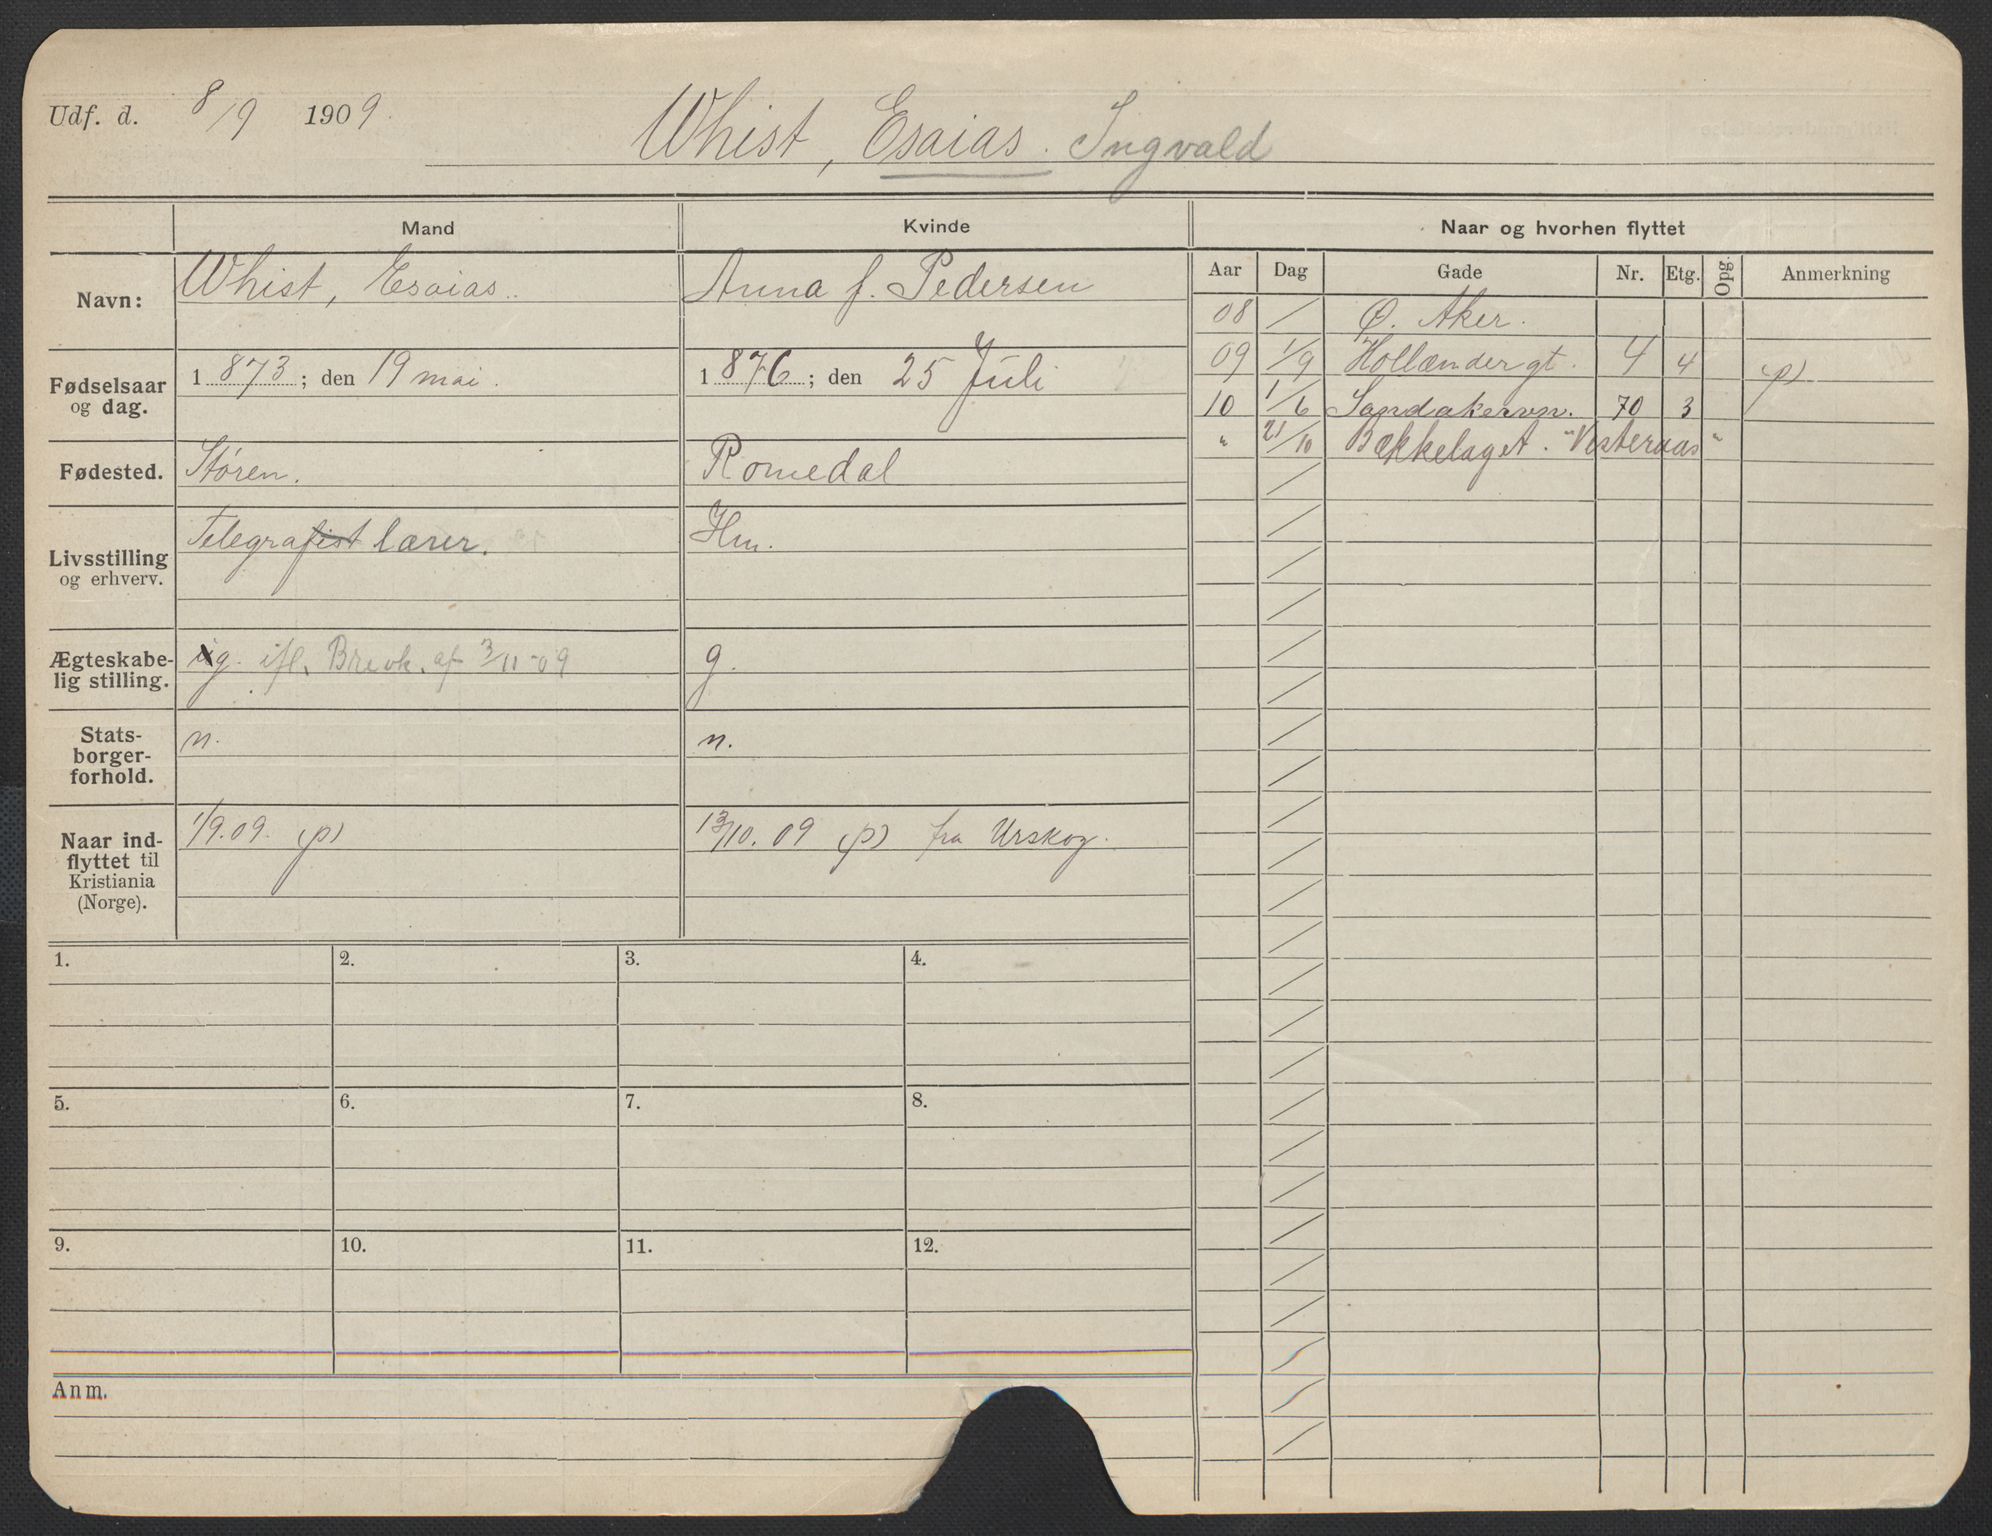 Udf. d. 8/9 1909.
Whist, Esaias. Ingvald
Mand
Kvinde
Naar og hvorhen flyttet
Navn:
Whist, Esaias.
Anna f. Pedersen
Fødselsaar og dag.
1873; den 19 mai.
1876; den 25 Juli
Fødested.
Støren.
Romedal
Livsstilling og erhverv.
Telegrafist lærer.
Hm.
Ægteskabe-
lig stilling.
g. ifl. Brevk. af 3/11-09
g.
Stats-
borger-
forhold.
n.
n.
Naar ind-
flyttet til
Kristiania
(Norge).
1/9.09. (p)
13/10.09 (p) fra Urskog.
Aar Dag Gade Nr. Etg. Opg. Anmerkning
08 / Ø. Aker.
09 1/9 Hollændergt. 4 4 (p)
10 1/6 Sandakervn. 70 3
" 21/10 Bækkelaget. "Vesteraas"
1. 2. 3. 4.
5. 6. 7. 8.
9. 10. 11. 12.
Anm.